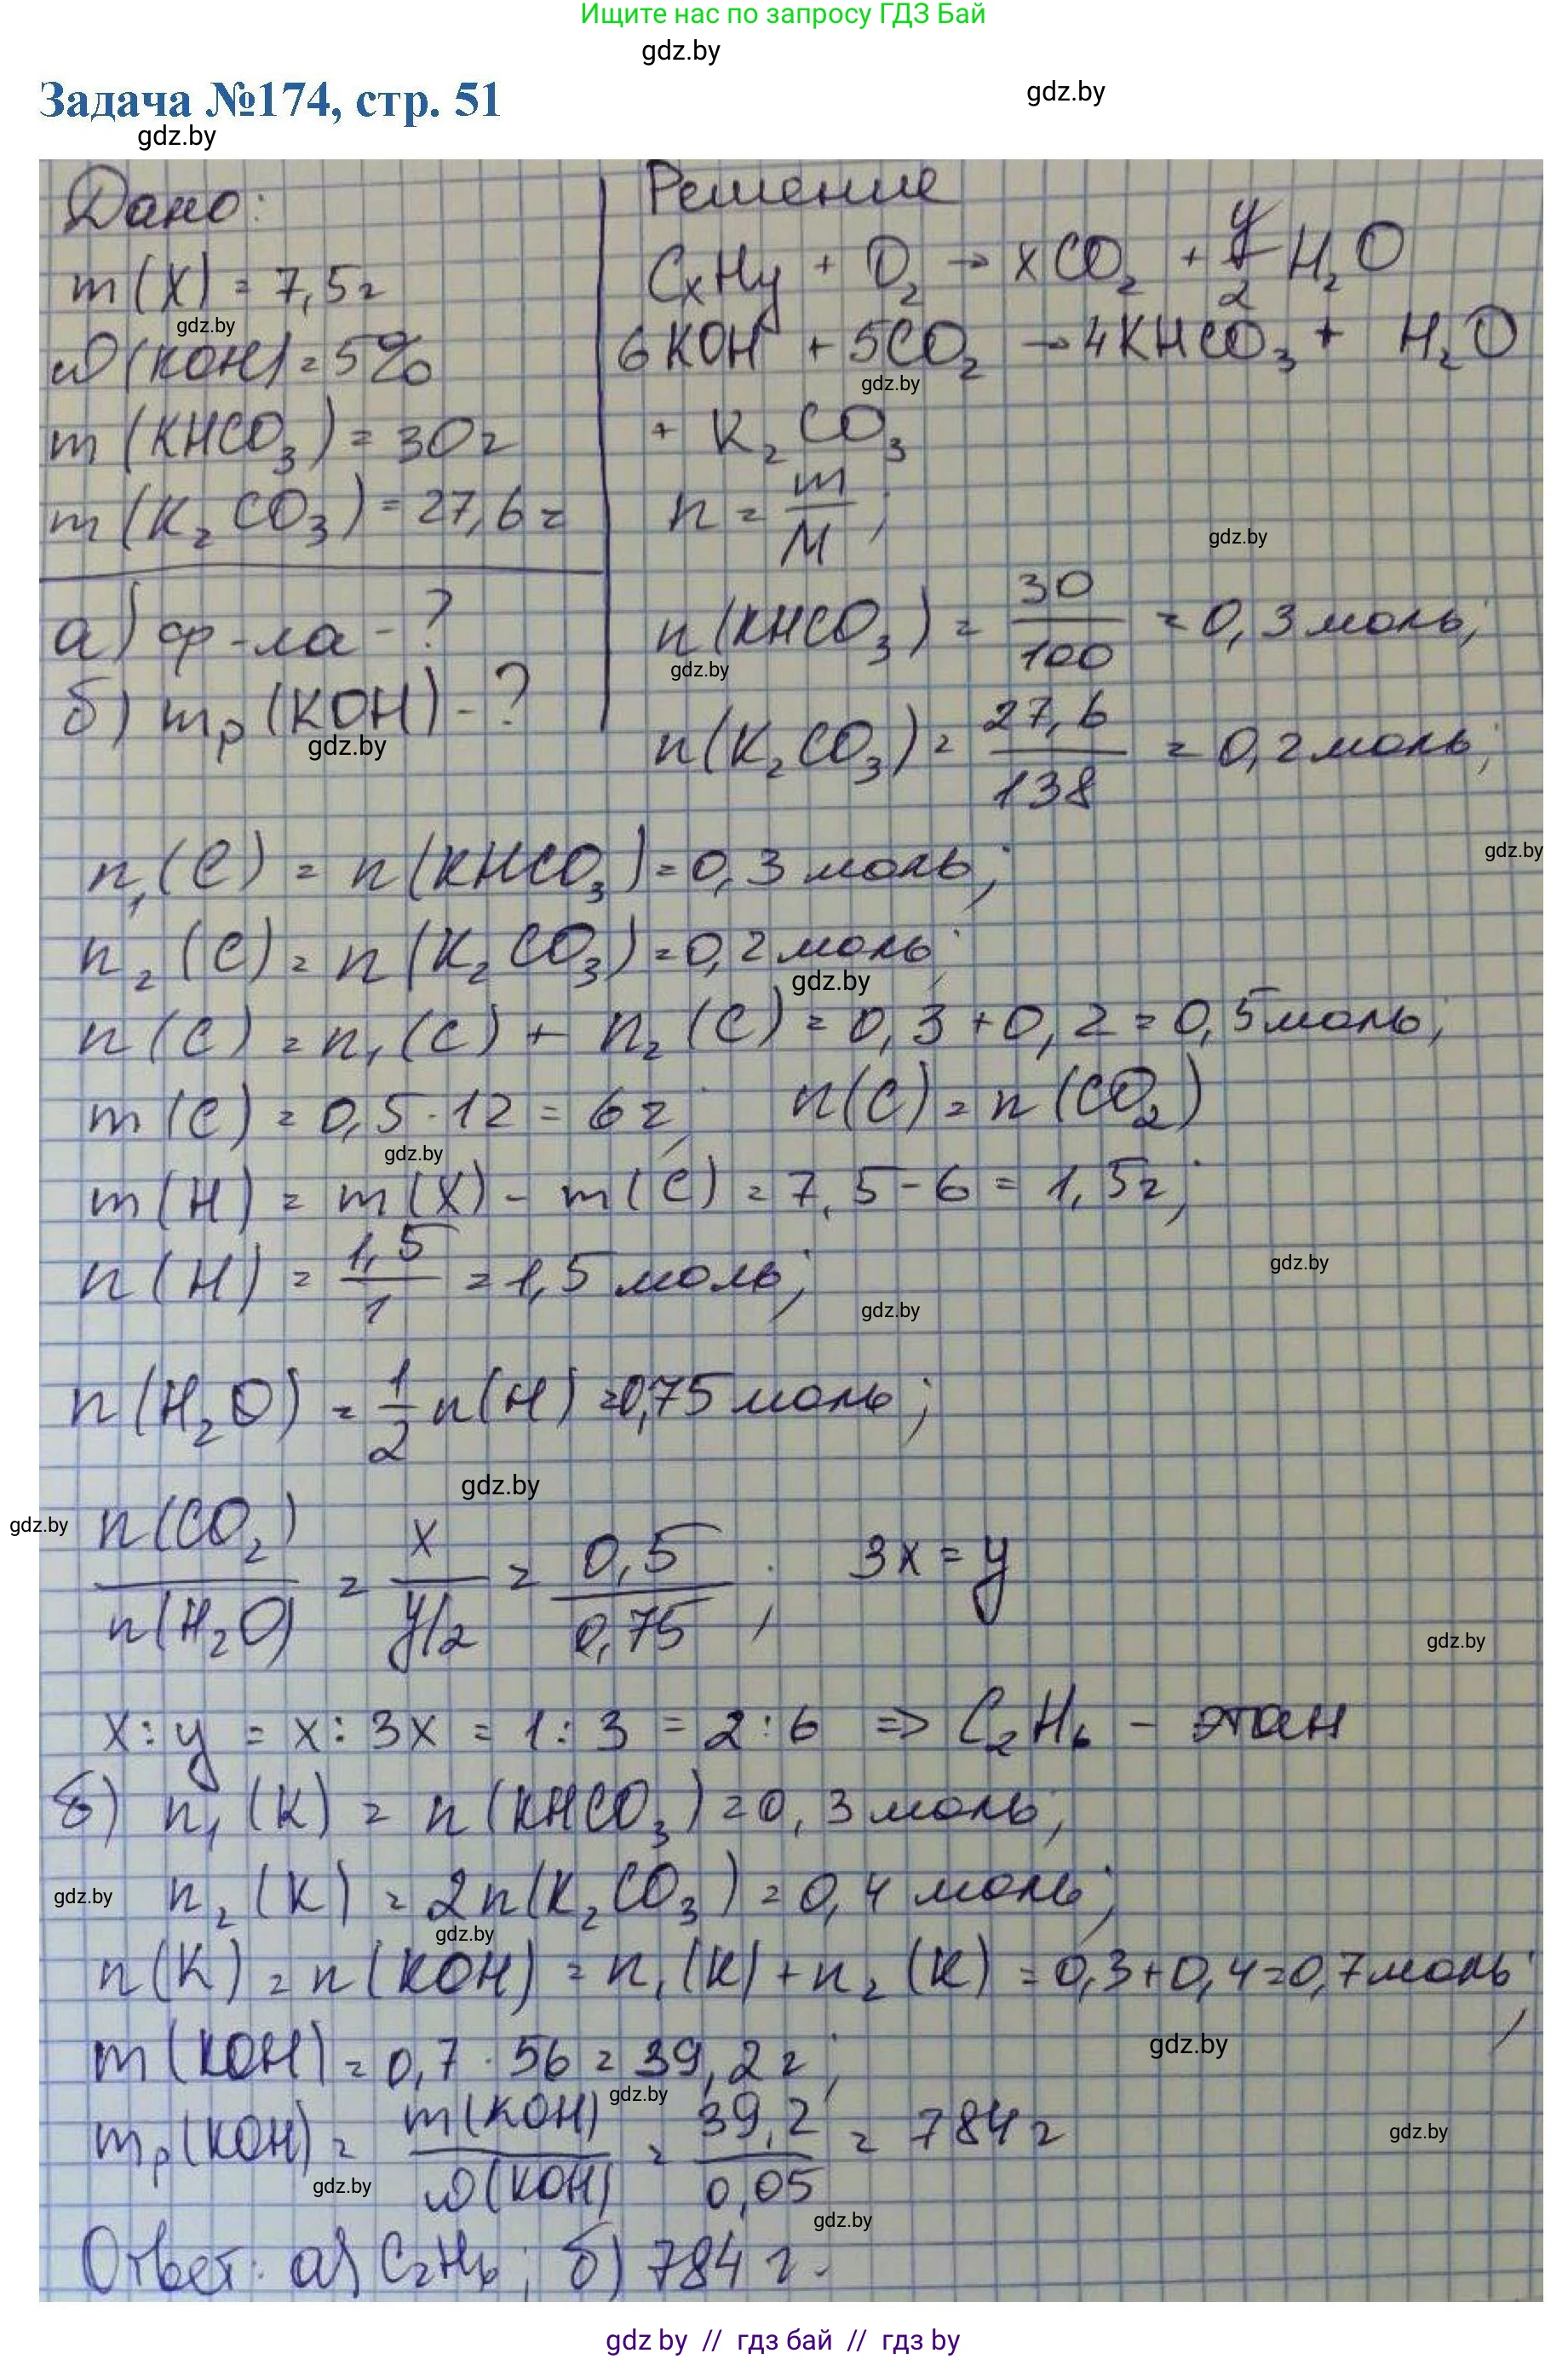 Ищите нас по запросу ГДЗ Бай
gdz.by
Задача №174, стр. 51
gdz.by
gdz.by
Дано:
m(X) = 7,5г
gdz.by
ω(KOH) = 5%
m(KHCO₃) = 30г
m(K₂CO₃) = 27,6г
а) ф-ла - ?
б) mр(KOH) - ?
gdz.by
Решение
CxHy + O₂ → xCO₂ + y/2 H₂O
6KOH + 5CO₂ → 4KHCO₃ + H₂O
gdz.by
+ K₂CO₃
n = m/M;
gdz.by
n(KHCO₃) = 30/100 = 0,3 моль;
gdz.by
n(K₂CO₃) = 27,6/138 = 0,2 моль;
gdz.by
n₁(C) = n(KHCO₃) = 0,3 моль;
n₂(C) = n(K₂CO₃) = 0,2 моль;
gdz.by
n(C) = n₁(C) + n₂(C) = 0,3 + 0,2 = 0,5 моль;
m(C) = 0,5 · 12 = 6г; n(C) = n(CO₂)
gdz.by
m(H) = m(X) - m(C) = 7,5 - 6 = 1,5г;
gdz.by
n(H) = 1,5/1 = 1,5 моль;
gdz.by
n(H₂O) = 1/2 n(H) = 0,75 моль;
gdz.by
gdz.by
n(CO₂)/n(H₂O) = x/y/2 = 0,5/0,75; 3x = y
gdz.by
x : y = x : 3x = 1 : 3 = 2 : 6 => C₂H₆ - этан
б) n₁(K) = n(KHCO₃) = 0,3 моль;
gdz.by
n₂(K) = 2n(K₂CO₃) = 0,4 моль;
gdz.by
n(K) = n(KOH) = n₁(K) + n₂(K) = 0,3+0,4=0,7 моль;
gdz.by
m(KOH) = 0,7 · 56 = 39,2г;
gdz.by
mр(KOH) = m(KOH)/ω(KOH) = 39,2/0,05 = 784г
gdz.by
gdz.by
gdz.by
Ответ: а) C₂H₆; б) 784 г.
gdz by // гдз бай // гдз by